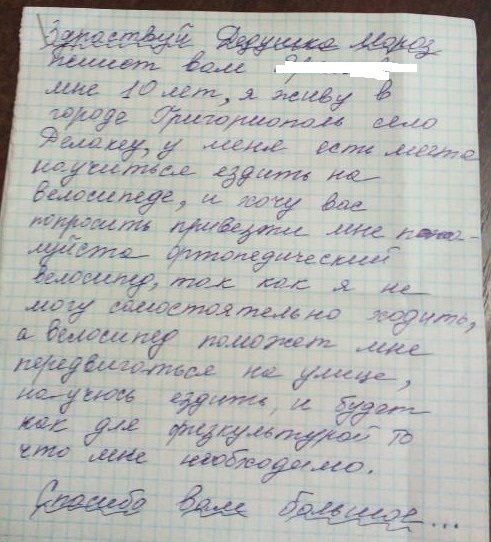 Здраствуй Дедушка Мароз
пешет вам
мне 10 лет, я живу в
городе Григориополь село
Делакеу, у меня есть мечта
научиться ездить на
велосипеде, и хочу вас
попросить привезти мне пожа-
луйста ортопедический
велосипед, так как я не
могу самостоятельно ходить,
а велосипед поможет мне
передвигаться на улице,
научюсь ездить, и будет
как для физкультурой то
что мне необходимо.
Спасибо вам большое...